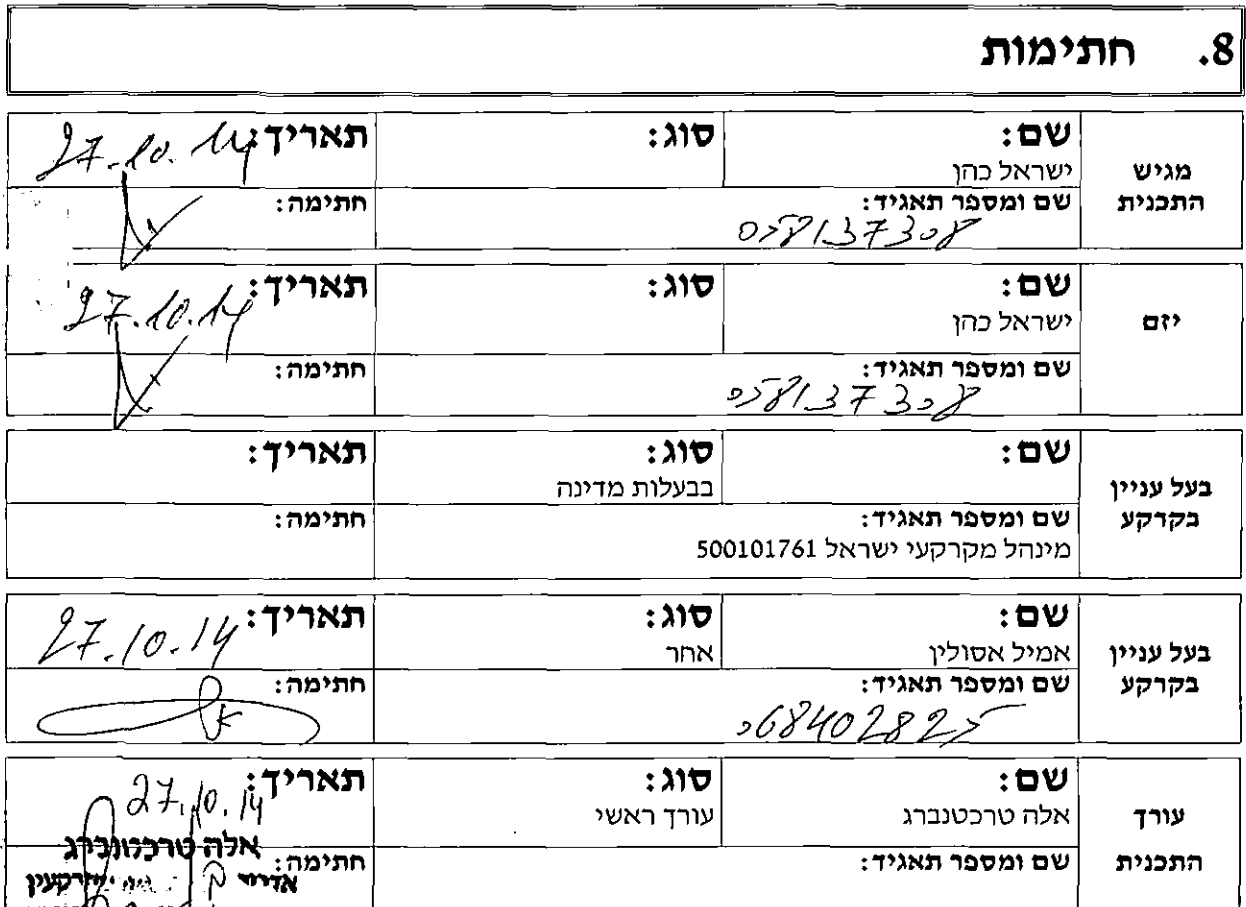 8. חתימות
מגיש התכנית
שם: ישראל כהן
סוג:
תאריך: 27.10.14
שם ומספר תאגיד: 058137308
חתימה:
יזם
שם: ישראל כהן
סוג:
תאריך: 27.10.14
שם ומספר תאגיד: 058137308
חתימה:
בעל עניין בקרקע
שם:
סוג: בבעלות מדינה
תאריך:
שם ומספר תאגיד: מינהל מקרקעי ישראל 500101761
חתימה:
בעל עניין בקרקע
שם: אמיל אסולין
סוג: אחר
תאריך: 27.10.14
שם ומספר תאגיד: 068402825
חתימה:
עורך התכנית
שם: אלה טרכטנברג
סוג: עורך ראשי
תאריך: 27.10.14
אלה טרכטנברג
שם ומספר תאגיד:
חתימה: